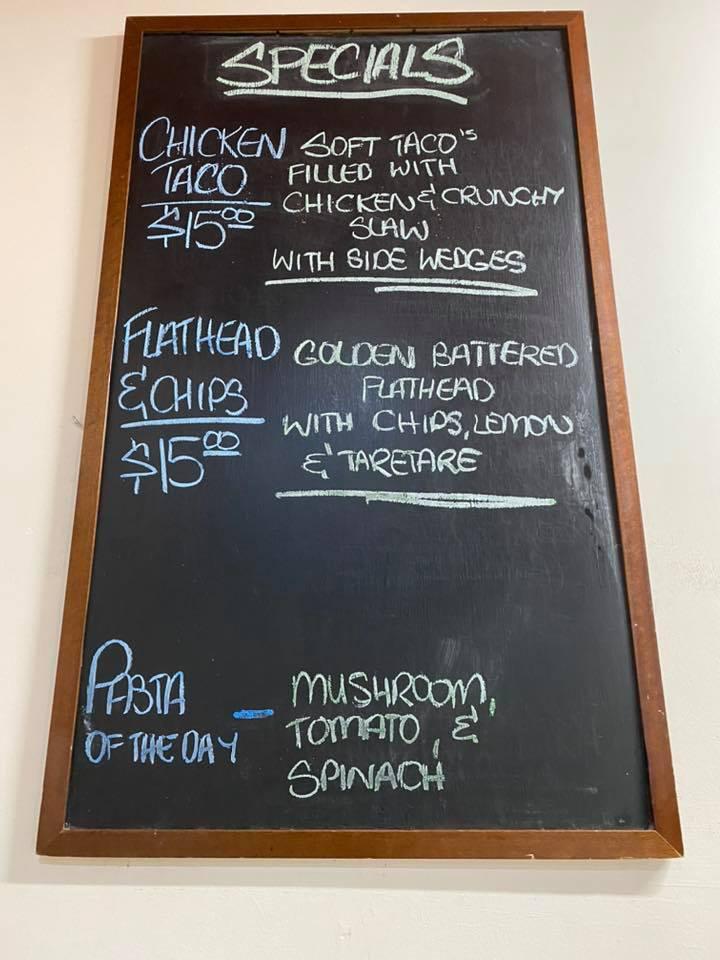 SPECIALS
CHICKEN
TACO
$15.00
SOFT TACO'S
FILLED WITH
CHICKEN & CRUNCHY
SLAW
WITH SIDE WEDGES
FLATHEAD
& CHIPS
$15.00
GOLDEN BATTERED
FLATHEAD
WITH CHIPS, LEMON
& TARETARE
PASTA
OF THE DAY
-
MUSHROOM,
TOMATO, &
SPINACH